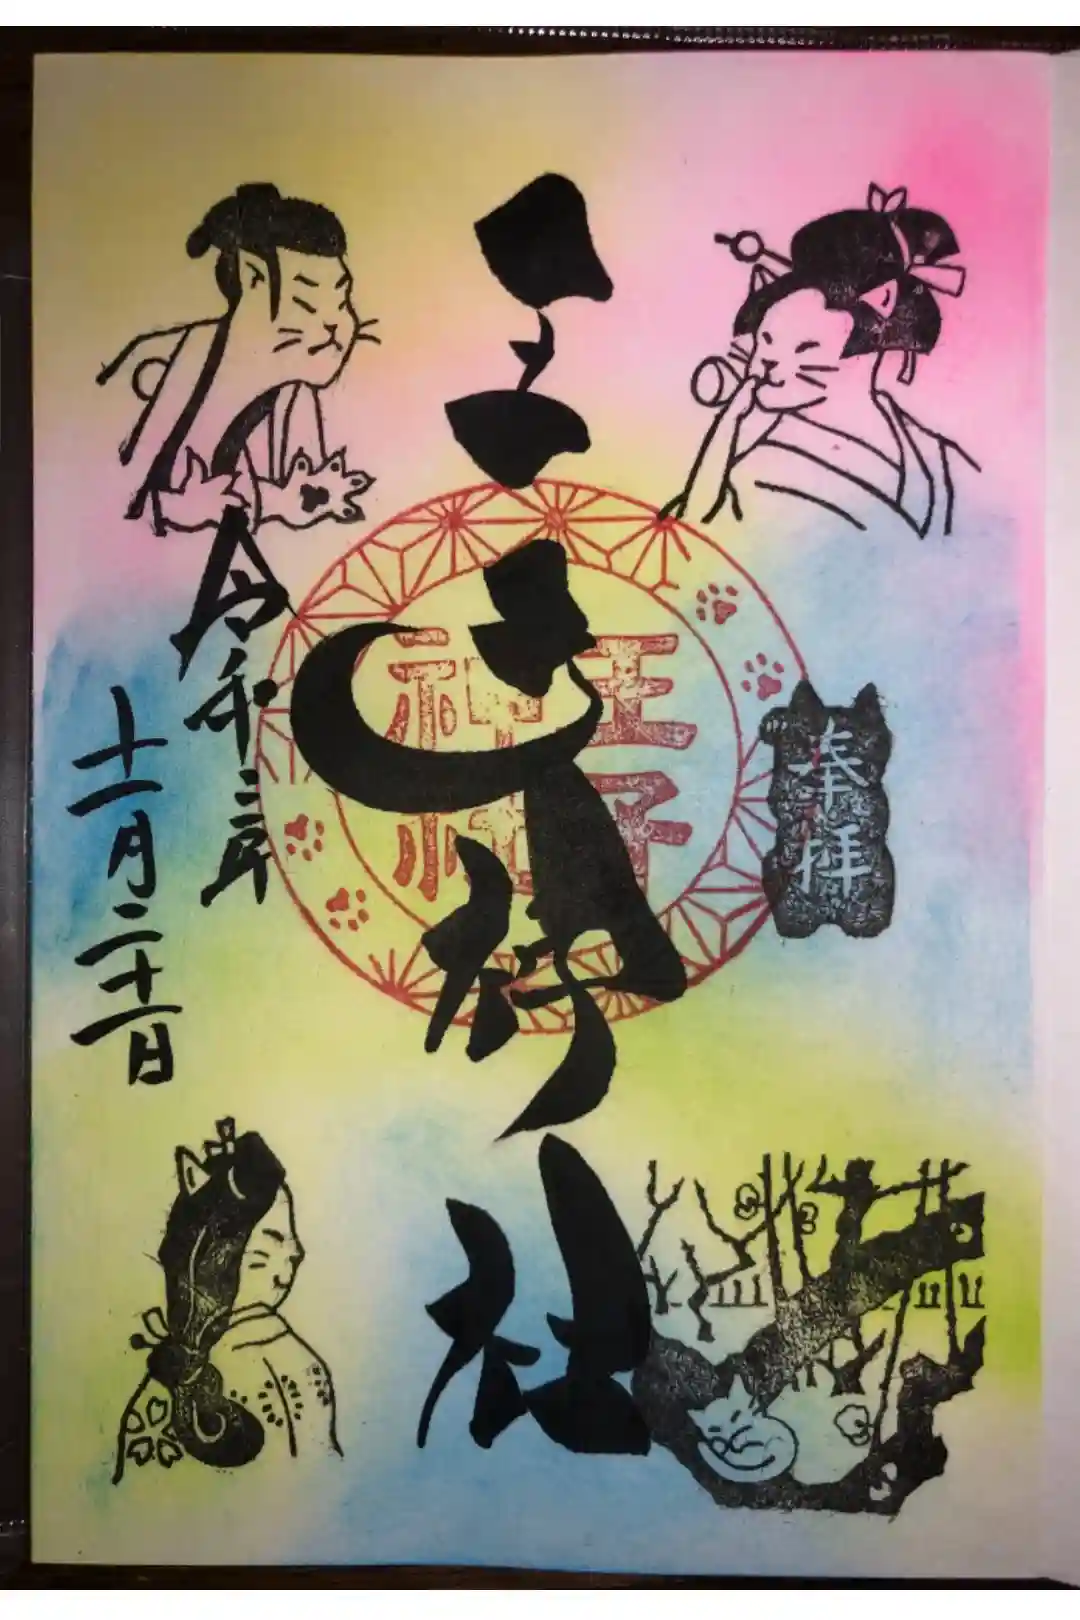 奉拝
王子神社
王子
神社
令和三年
十一月二十一日